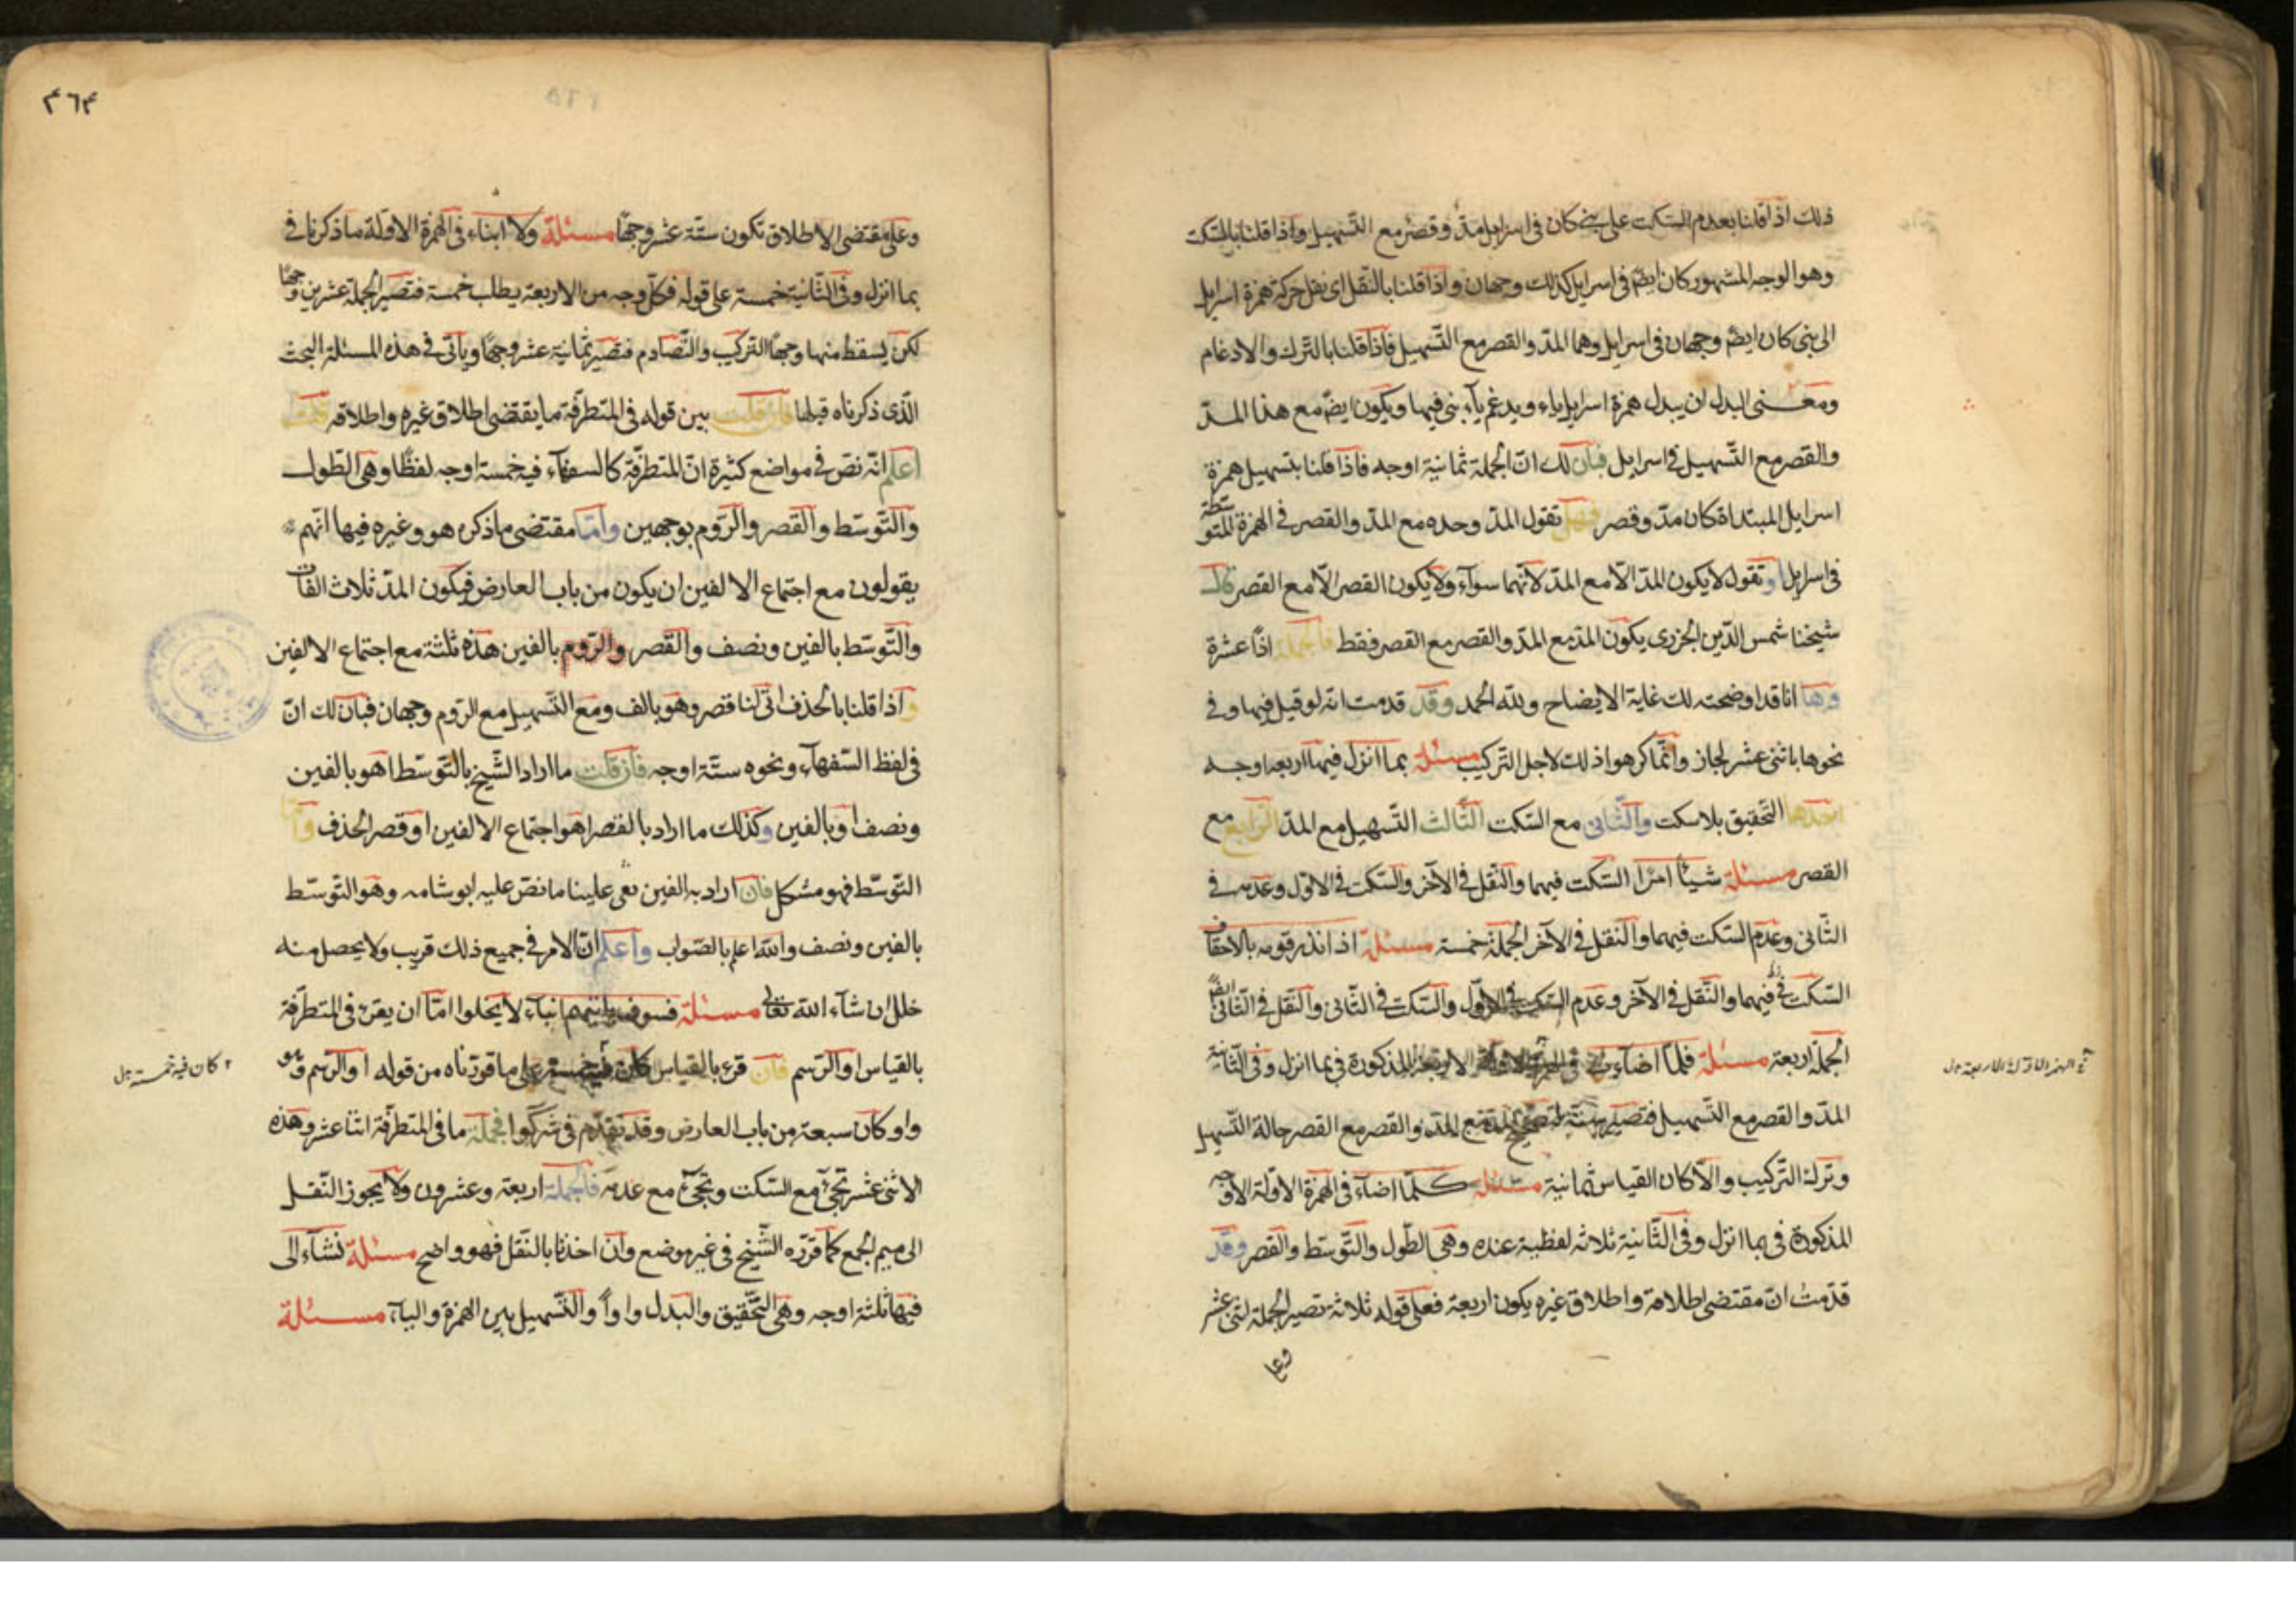 ذلك اذا قلنا بعدم السكت على بنى كان فى اسرايل مدّ وقصر مع التّسهيل واذا قلنا بالسّكت
وهو الوجه المشهور كان ايضّ فى اسرايل كذلك وجهان واذا قلنا بالنّقل اى نقل حركة همزة اسرايل
الى بنى كان ايضّ وجهان فى اسرايل وهما المدّ والقصر مع التّسهيل فاذا قلنا بالترك والادغام
ومعنى البدل ان يبدل همزة اسرايل ياء ويدغم يآء بنى فيها ويكون ايضّ مع هذا المدّ
والقصر مع التّسهيل فى اسرايل فبان لك انّ الجملة ثمانية اوجه فاذا قلنا بتسهيل همزة
اسرايل المبتداة كان مدّ وقصر فهل تقول المدّ وحده مع المدّ والقصر فى الهمزة المتوسّطة
فى اسرايل او تقول لا يكون المدّ الّا مع المدّ لانّهما سوآء ولا يكون القصر الّا مع القصر قال
شيخنا شمس الدّين الجزرى يكون المدّ مع المدّ والقصر مع القصر فقط فالجملة اذًا عشرة
وها انا قد اوضحته لك غاية الايضاح ولله الحمد وقد قدمت انّه لو قيل فيها وفى
نحوها باثنى عشر لجاز وانّما كرهوا ذلك لاجل التّركيب مسئلة بما انزل فيها اربعة اوجه
احدها التّحقيق بلا سكت والثّانى مع السّكت الثّالث التّسهيل مع المدّ الرّابع مع
القصر مسئلة شيئًا امرًا السّكت فيهما والنّقل فى الآخر والسّكت فى الاوّل وعدمه فى
الثّانى وعدم السّكت فيهما والنّقل فى الآخر الجملة خمسة مسئلة اذ انذر قومه بالاحقاف
السّكت فيهما والنّقل فى الآخر وعدم السّكت فى الاوّل والسّكت فى الثّانى والنّقل فى الثّانى ايضًا
الجملة اربعة مسئلة فلمّا اضآءت فى الهمزة الاولة الاربعة المذكورة فى بما انزل وفى الثّانية
المدّ والقصر مع التّسهيل فتصير ستّة المدّ مع المدّ والقصر مع القصر حالة التّسهيل
وترك التّركيب والّا كان القياس ثمانية مسئلة كلّما اضآء فى الهمزة الاولة الاوجه
المذكورة فى بما انزل وفى الثّانية ثلاثه لفظية عنده وهى الطّول والتّوسّط والقصر وقد
قدّمت انّ مقتضى اطلاقه واطلاق غيره يكون اربعة فعلى قوله ثلاثة تصير الجملة اثنى عشر
وعلى
٤٦٤
وعلى مقتضى الاطلاق تكون ستّة عشر وجهًا مسئلة ولا ابناء فى الهمزة الاولة ما ذكرنا فى
بما انزل وفى الثّانية خمسة على قوله فكلّ وجه من الاربعة يطلب خمسة فتصير الجملة عشرين وجهًا
لكن يسقط منها وجها التّركيب والتّصادم فتصير ثمانية عشر وجهًا ويأتى فى هذه المسئلة البحث
الّذى ذكرناه قبلها فان قلت بين قوله فى المتطرّفة ما يقتضى اطلاق غيره واطلاقه قلت
اعلم انّه نصّ فى مواضع كثيرة انّ المتطرّفة كالسفهآء فيه خمسة اوجه لفظًا وهى الطّول
والتّوسّط والقصر والرّوم بوجهين وامّا مقتضى ما ذكره هو وغيره فيها انّهم
يقولون مع اجتماع الالفين ان يكون من باب العارض فيكون المدّ ثلاث الفات
والتّوسّط بالفين ونصف والقصر والرّوم بالفين هذه ثلثة مع اجتماع الالفين
واذا قلنا بالحذف اتى لنا قصر وهو بالف ومع التّسهيل مع الرّوم وجهان فبان لك انّ
فى لفظ السّفهآء ونحوه ستّة اوجه فان قلت ما اراد الشّيخ بالتّوسّط اهو بالفين
ونصف او بالفين وكذلك ما اراد بالقصر اهو اجتماع الالفين او قصر الحذف وامّا
التّوسّط فهو مشكل فان اراد به الفين بقى علينا ما نصّ عليه ابو شامه وهو التوسّط
بالفين ونصف والله اعلم بالصّواب واعلم انّ الامر فى جميع ذلك قريب ولا يحصل منه
خلل ان شآء الله تعالى مسئلة فسوف يأتيهم انبآء لا يخلوا امّا ان يقرئ فى المتطرّفة
بالقياس او الرّسم فان قرء بالقياس كان فيه خمسة على ما قررناه من قوله او الرّسم وهو
واو كان سبعة من باب العارض وقد تقدّم فى شركوا فجملة ما فى المتطرّفة اثنا عشر وهذه
الاثنى عشر تجئ مع السّكت وتجئ مع عدمه فالجملة اربعة وعشرون ولا يجوز النّقل
الى ميم الجمع كما قرّره الشّيخ فى غير موضع وان اخذنا بالنّقل فهو واضح مسئلة نشآء الى
فيها ثلثة اوجه وهى التّحقيق والبدل واوًا والتّسهيل بين الهمزة واليآء مسئلة
كان فيه خمسة